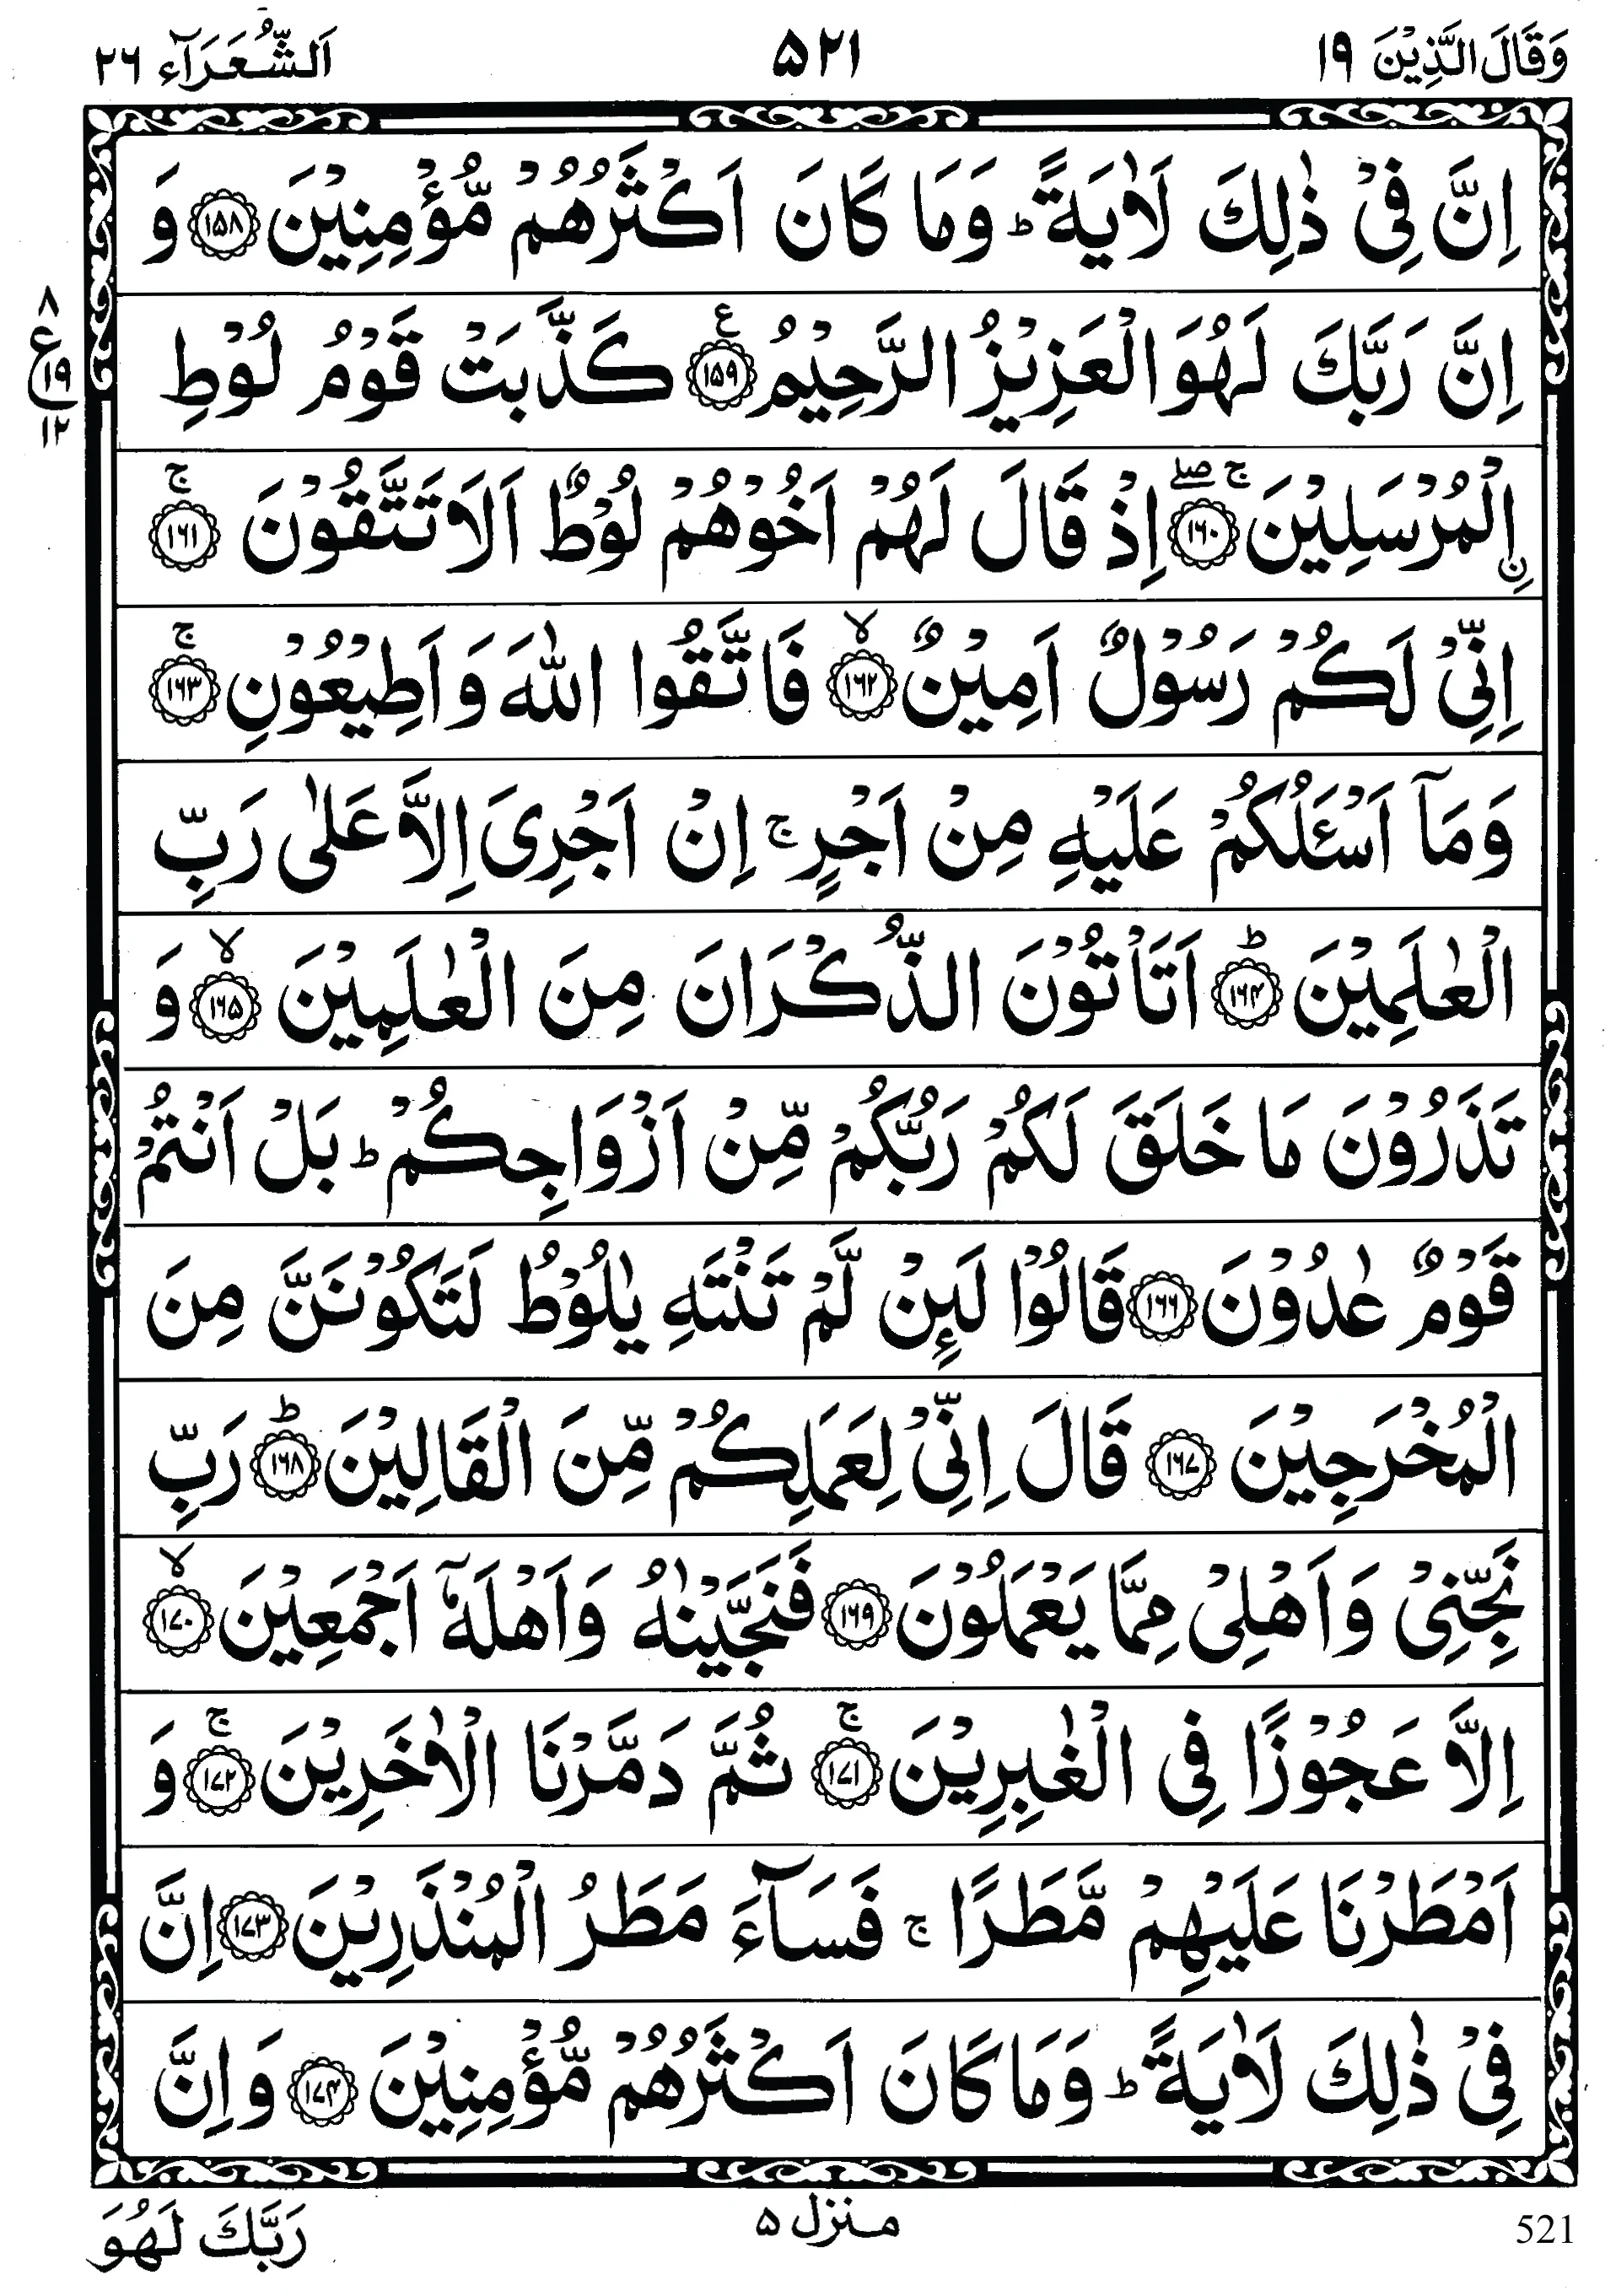 وَقَالَ الَّذِيْنَ ١٩
۵۲۱
اَلشُّعَرَآء ٢٦
اِنَّ فِیْ ذٰلِكَ لَاٰيَةً ؕ وَمَا كَانَ اَكْثَرُهُمْ مُّؤْمِنِيْنَ ﴿۱۵۸﴾ وَ
اِنَّ رَبَّكَ لَهُوَ الْعَزِيْزُ الرَّحِيْمُ ﴿۱۵۹﴾ ع كَذَّبَتْ قَوْمُ لُوْطِ
۸
ع
١٩
١٢
ﹻنِ الْمُرْسَلِيْنَ ﴿۱۶۰﴾ ۚۖ اِذْ قَالَ لَهُمْ اَخُوْهُمْ لُوْطٌ اَلَا تَتَّقُوْنَ ﴿۱۶۱﴾ ۚ
اِنِّیْ لَكُمْ رَسُوْلٌ اَمِيْنٌ ﴿۱۶۲﴾ ۙ فَاتَّقُوا اللّٰهَ وَاَطِيْعُوْنِ ﴿۱۶۳﴾ ۚ
وَمَاۤ اَسْـَٔلُكُمْ عَلَيْهِ مِنْ اَجْرٍ ۚ اِنْ اَجْرِیَ اِلَّا عَلٰی رَبِّ
الْعٰلَمِيْنَ ﴿۱۶۴﴾ ؕ اَتَاْتُوْنَ الذُّكْرَانَ مِنَ الْعٰلَمِيْنَ ﴿۱۶۵﴾ ۙ وَ
تَذَرُوْنَ مَا خَلَقَ لَكُمْ رَبُّكُمْ مِّنْ اَزْوَاجِكُمْ ؕ بَلْ اَنْتُمْ
قَوْمٌ عٰدُوْنَ ﴿۱۶۶﴾ قَالُوْا لَىِٕنْ لَّمْ تَنْتَهِ يٰلُوْطُ لَتَكُوْنَنَّ مِنَ
الْمُخْرَجِيْنَ ﴿۱۶۷﴾ قَالَ اِنِّیْ لِعَمَلِكُمْ مِّنَ الْقَالِيْنَ ﴿۱۶۸﴾ ؕ رَبِّ
نَجِّنِیْ وَاَهْلِیْ مِمَّا يَعْمَلُوْنَ ﴿۱۶۹﴾ فَنَجَّيْنٰهُ وَاَهْلَهٗۤ اَجْمَعِيْنَ ﴿۱۷۰﴾ ۙ
اِلَّا عَجُوْزًا فِی الْغٰبِرِيْنَ ﴿۱۷۱﴾ ۚ ثُمَّ دَمَّرْنَا الْاٰخَرِيْنَ ﴿۱۷۲﴾ ۚ وَ
اَمْطَرْنَا عَلَيْهِمْ مَّطَرًا ۚ فَسَآءَ مَطَرُ الْمُنْذَرِيْنَ ﴿۱۷۳﴾ اِنَّ
فِیْ ذٰلِكَ لَاٰيَةً ؕ وَمَا كَانَ اَكْثَرُهُمْ مُّؤْمِنِيْنَ ﴿۱۷۴﴾ وَاِنَّ
رَبَّكَ لَهُوَ
منزل ۵
521